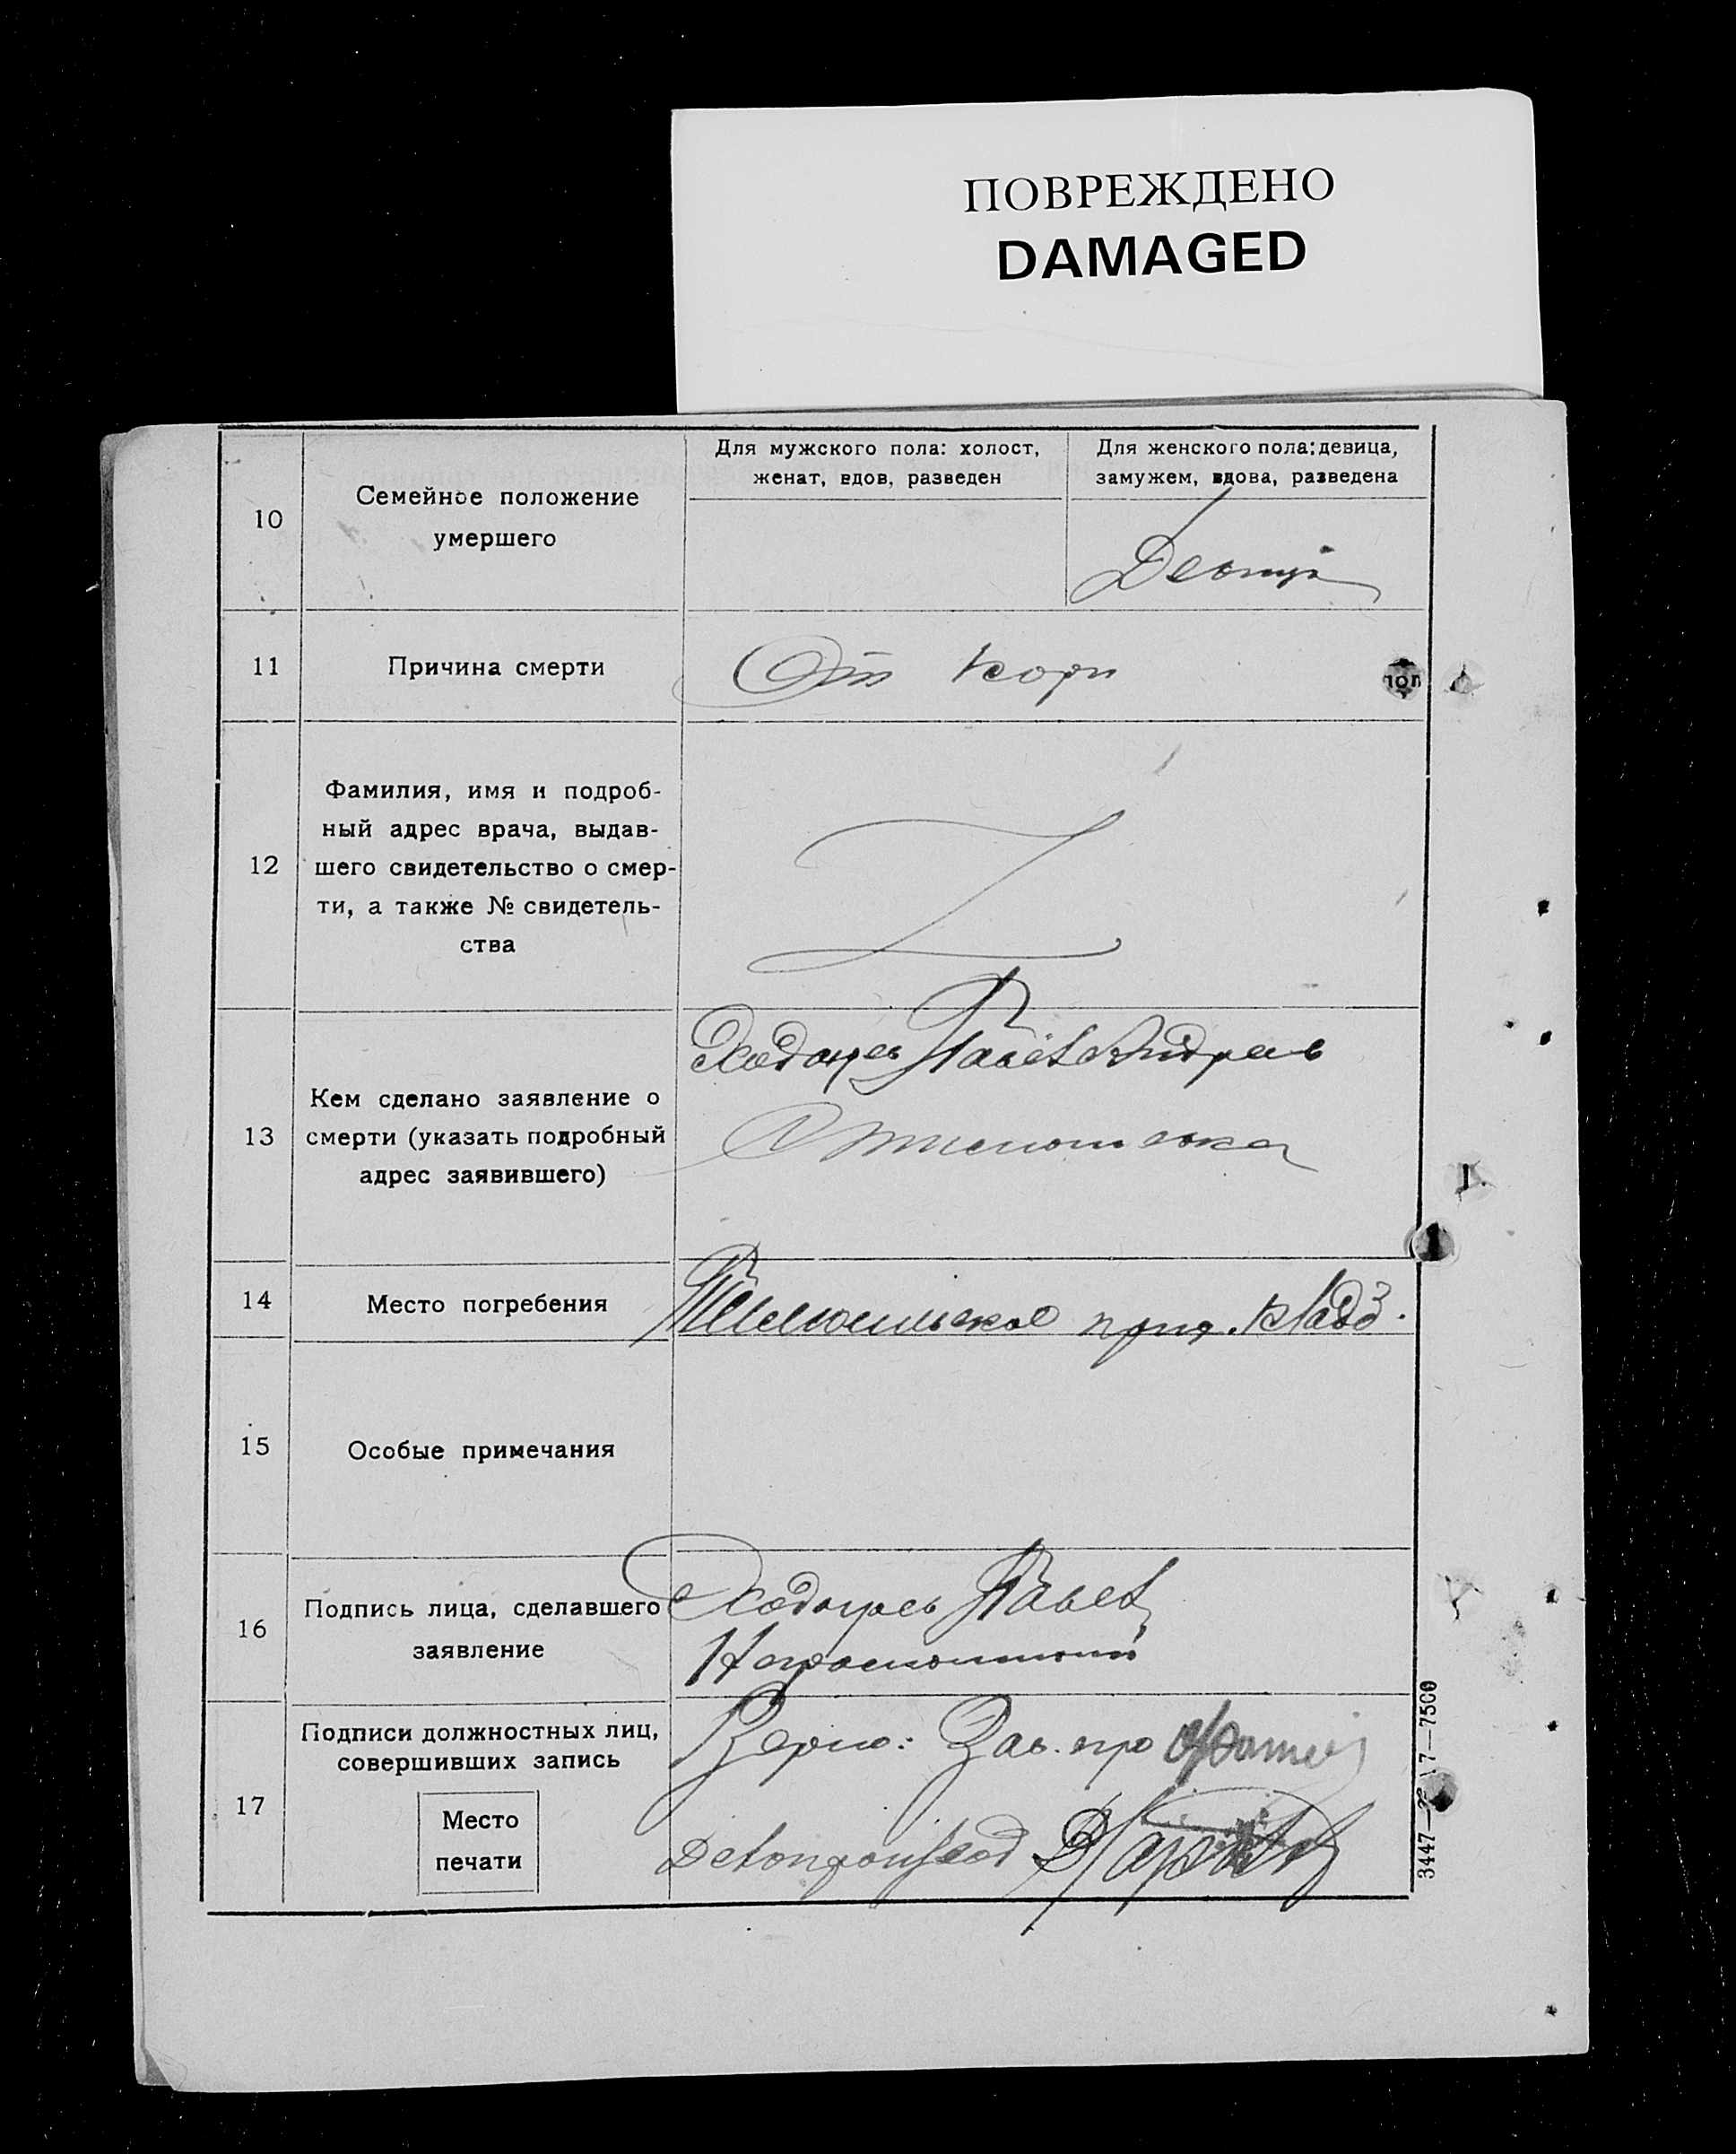 ПОВРЕЖДЕНО
DAMAGED
10
Семейное положение
умершего
Для мужского пола: холост,
женат, вдов, разведен
Для женского пола: девица,
замужем, вдова, разведена
Девица
11
Причина смерти
От кори
12
Фамилия, имя и подроб-
ный адрес врача, выдав-
шего свидетельство о смер-
ти, а также № свидетель-
ства
13
Кем сделано заявление о
смерти (указать подробный
адрес заявившего)
Ходырев Павел Андреев
14
Место погребения
прих. кладб.
15
Особые примечания
16
Подпись лица, сделавшего
заявление
Ходырев Павел
Неграмотный
17
Подписи должностных лиц,
совершивших запись
Место
печати
Верно: Зав.
Делопроизвод
3447 7—7500